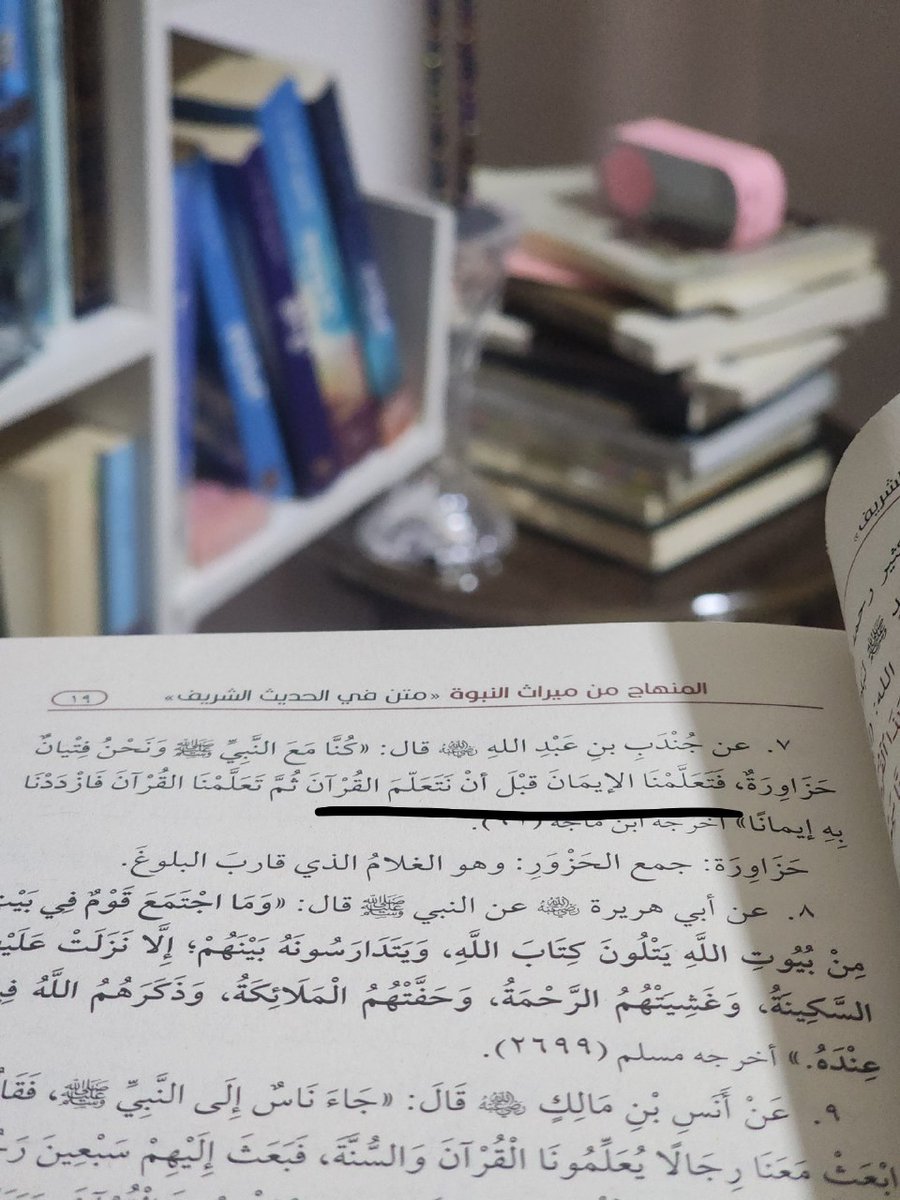 المنهاج من ميراث النبوة «متن في الحديث الشريف» ١٩
٧. عن جُنْدَبِ بنِ عَبْدِ اللهِ ﵁ قال: «كُنَّا مَعَ النَّبِيِّ ﷺ وَنَحْنُ فِتْيانٌ
حَزَاوِرَةٌ، فَتَعَلَّمْنَا الإيمَانَ قَبْلَ أنْ نَتَعَلّمَ القُرْآنَ ثُمَّ تَعَلَّمْنَا القُرْآنَ فَازْدَدْنَا
بِهِ إيمانًا» أخرجه ابن ماجه
حَزَاوِرَة: جمع الحَزْوَرِ: وهو الغلامُ الذي قاربَ البلوغَ.
٨. عن أبي هريرة ﵁ عن النبي ﷺ قال: «وَمَا اجْتَمَعَ قَوْمٌ فِي بَيْتٍ
مِنْ بُيُوتِ اللَّهِ يَتْلُونَ كِتَابَ اللَّهِ، وَيَتَدَارَسُونَهُ بَيْنَهُمْ؛ إِلَّا نَزَلَتْ
السَّكِينَةُ، وَغَشِيَتْهُمُ الرَّحْمَةُ، وَحَفَّتْهُمُ الْمَلَائِكَةُ، وَذَكَرَهُمُ اللَّهُ
عِنْدَهُ.» أخرجه مسلم (٢٦٩٩).
٩. عَنْ أَنَسِ بْنِ مَالِكٍ ﵁ قَالَ: «جَاءَ نَاسٌ إِلَى النَّبِيِّ ﷺ،
ابْعَثْ مَعَنَا رِجَالًا يُعَلِّمُونَا الْقُرْآنَ وَالسُّنَّةَ، فَبَعَثَ إِلَيْهِمْ سَبْعِينَ
الشريف»